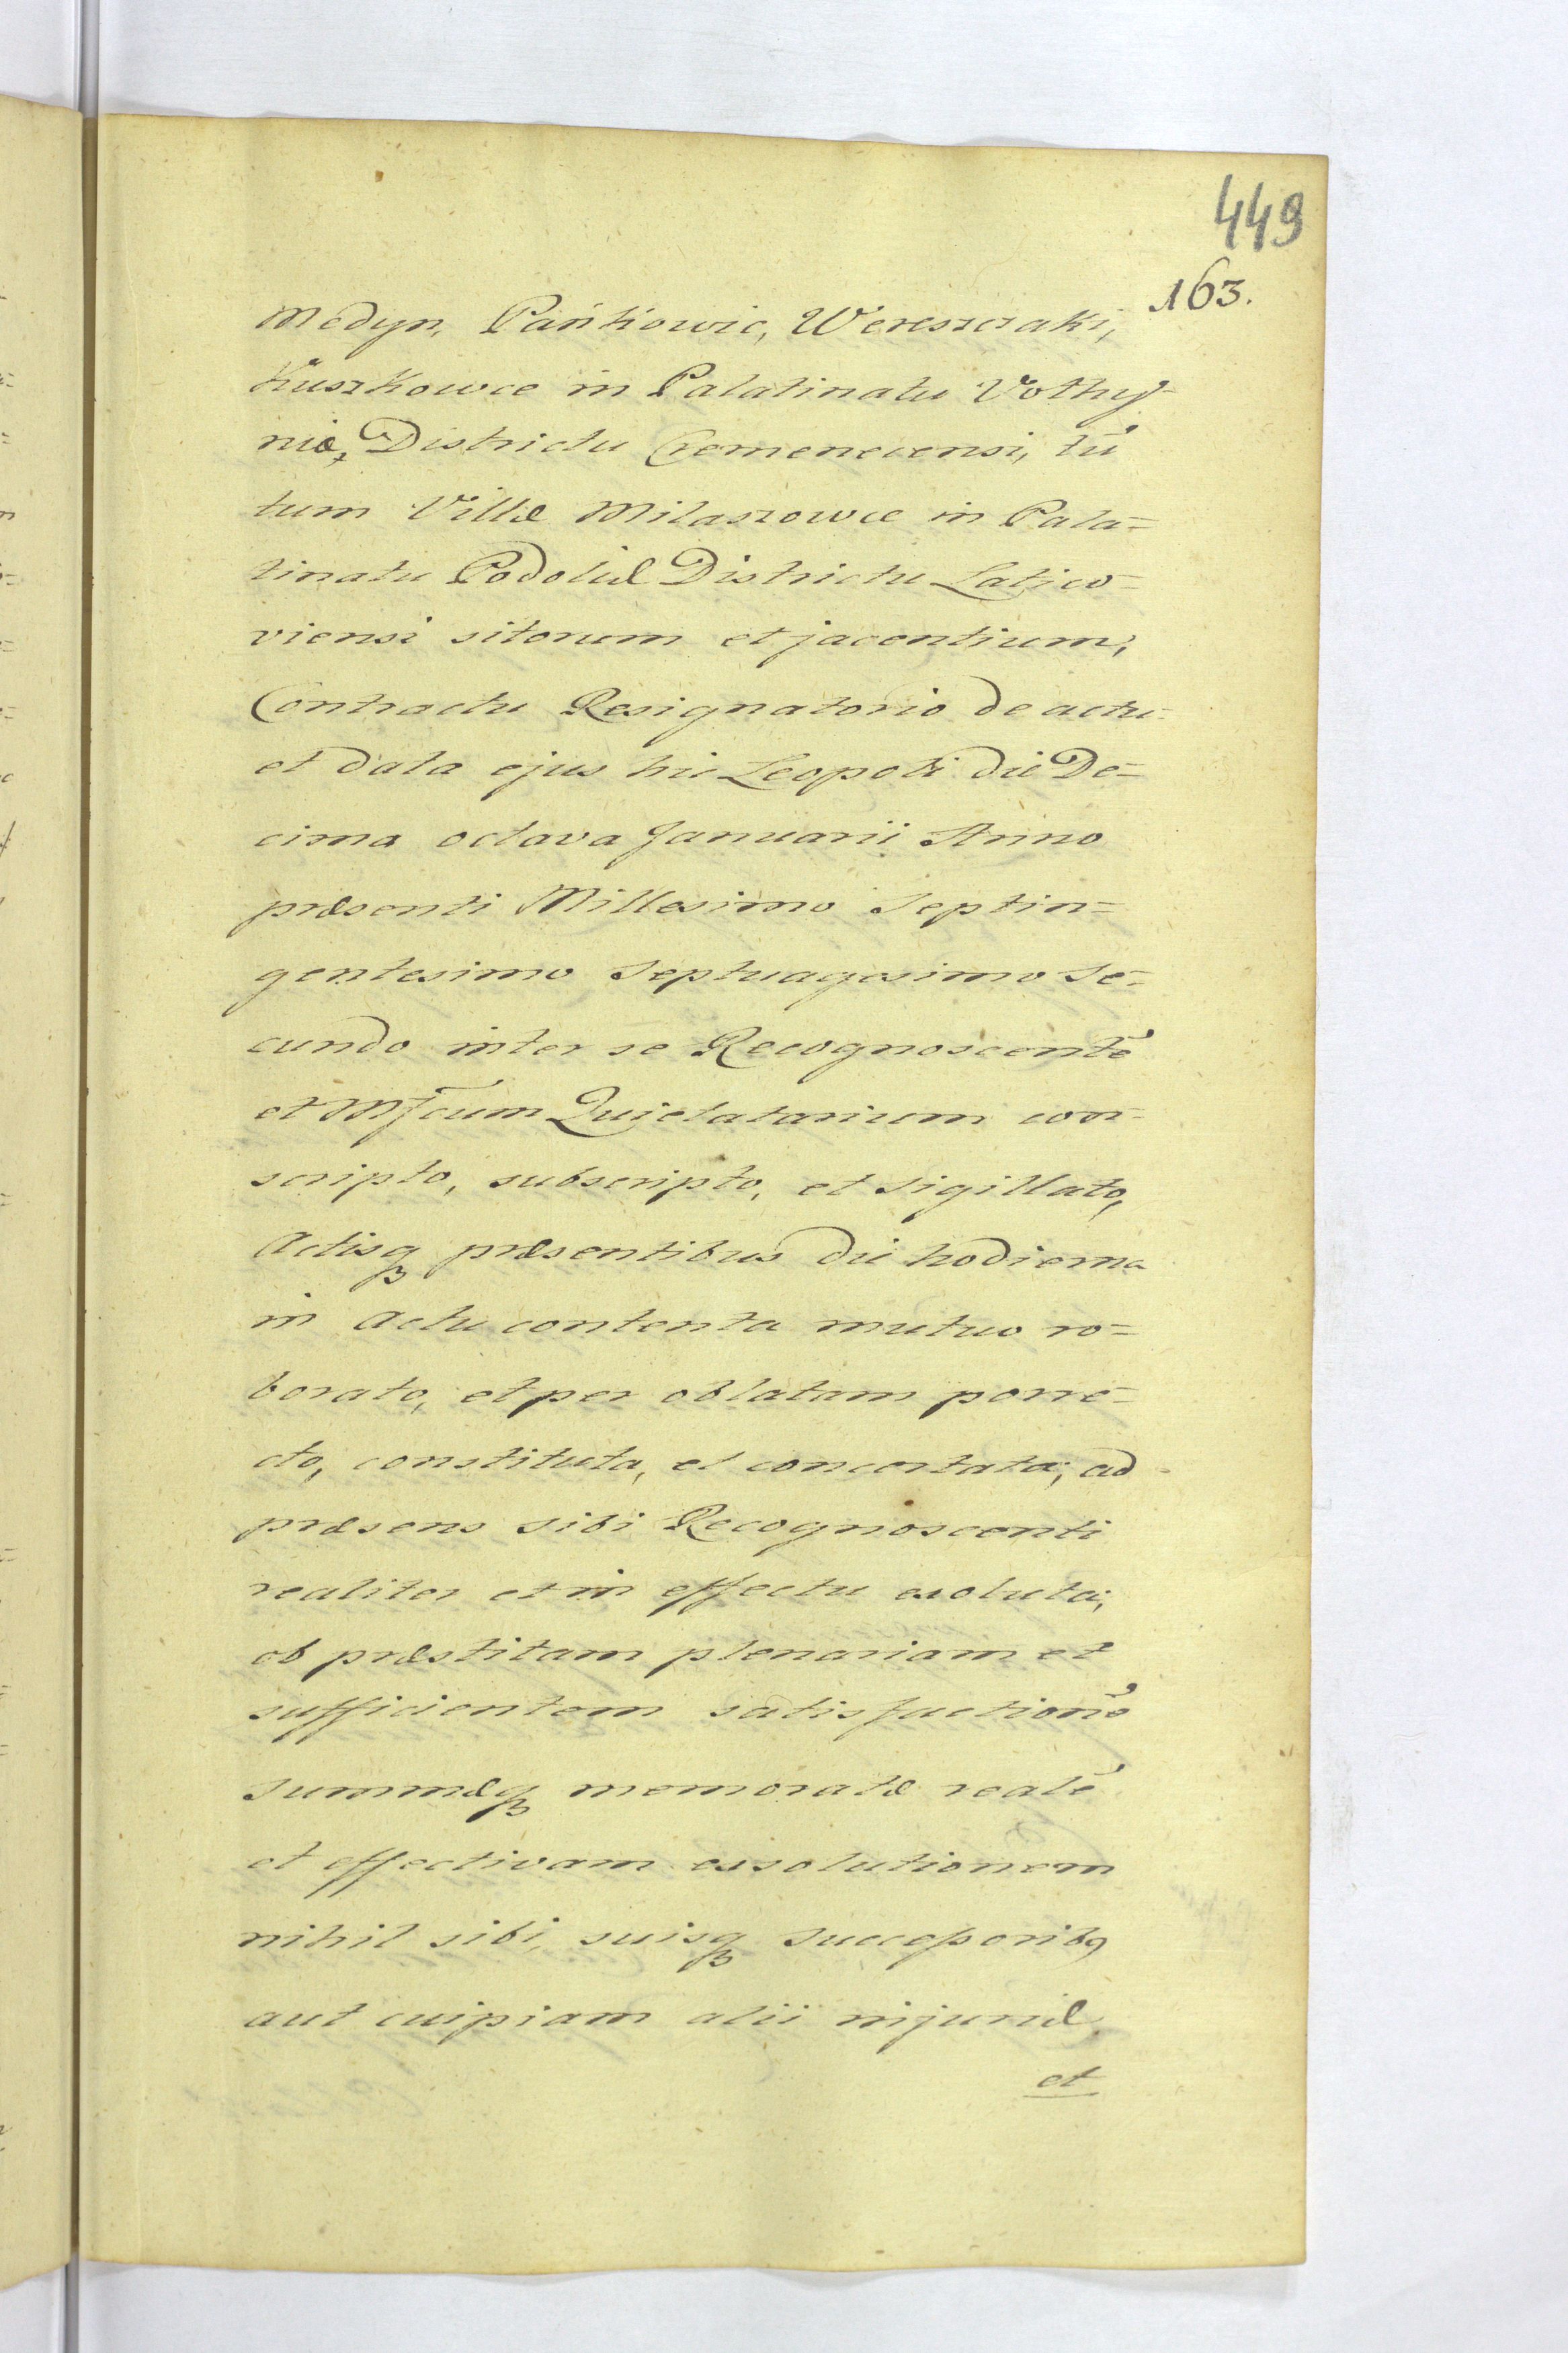 449
163.
Medyn, Pańkowic, Wereszczaki,
Kuszkowce in Palatinatu Volhy-
niæ, Districtu Cremenecensi, tū
tum Villæ Milaszowce in Pala=
tinatu Podoliæ Districtu Latico=
viensi sitorum et jacentium,
Contractu Resignatorio de actu
et data ejus hic Leopoli die De=
cima octava Januarii Anno
præsenti Millesimo Septin=
gentesimo Septuagesimo Se=
cundo inter se Recognoscentē
et Mfcum Quietatarium con=
scripto, subscripto, et sigillato,
Actisqꝫ præsentibus die hodierna
in Actu contenta mutuo ro=
borato, et per oblatam porre=
cto, constituta, et concertata, ad
præsens sibi Recognoscenti
realiter et in effectu exoluta;
ob præstitam plenariam et
sufficientem satisfactionē
Summæqꝫ memoratæ realē
et effectivam exsolutionem
nihil sibi, suisqꝫ Successoribꝯ
aut cuipiam alii injuriæ
et